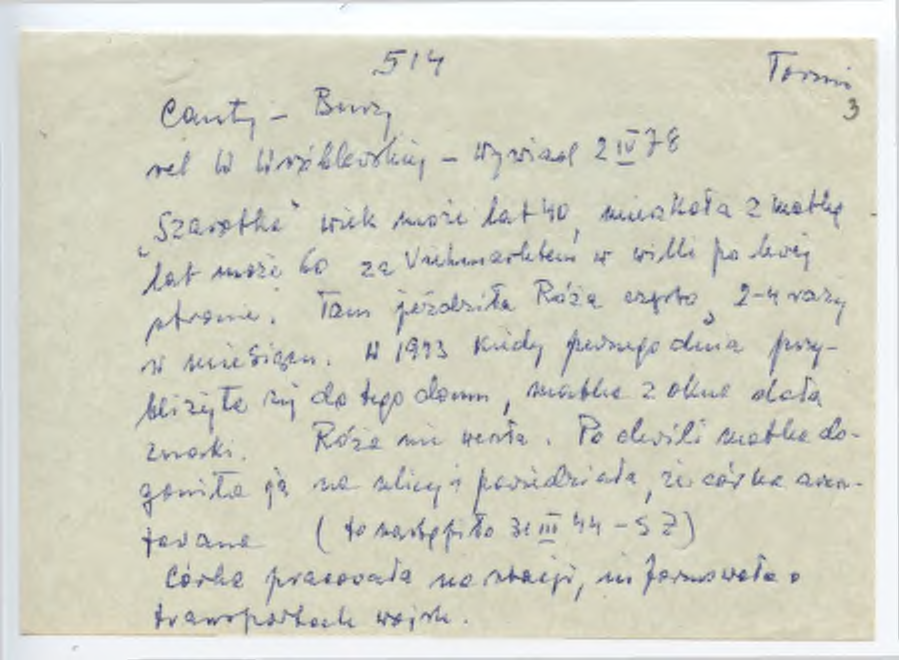 514
Toruń
3
Canty – Burzy
rel W Wróblewskiej – Wywiad 2 IV 78
„Szarotka" wiek może lat 40, mieszkała z matką
lat może 60 za Viehmarktem w willi po lewej
stronie. Tam jeździła Róża często, 2-4 razy
w miesiącu. W 1943 kiedy pewnego dnia przy-
bliżyła się do tego domu, matka z okna dała
znaki. Róża nie weszła. Po chwili matka do-
goniła ją na ulicy i powiedziała, że córka aresz-
towana (to nastąpiło 31 III 44 – SZ)
Córka pracowała na stacji, informowała o
transportach wojsk.